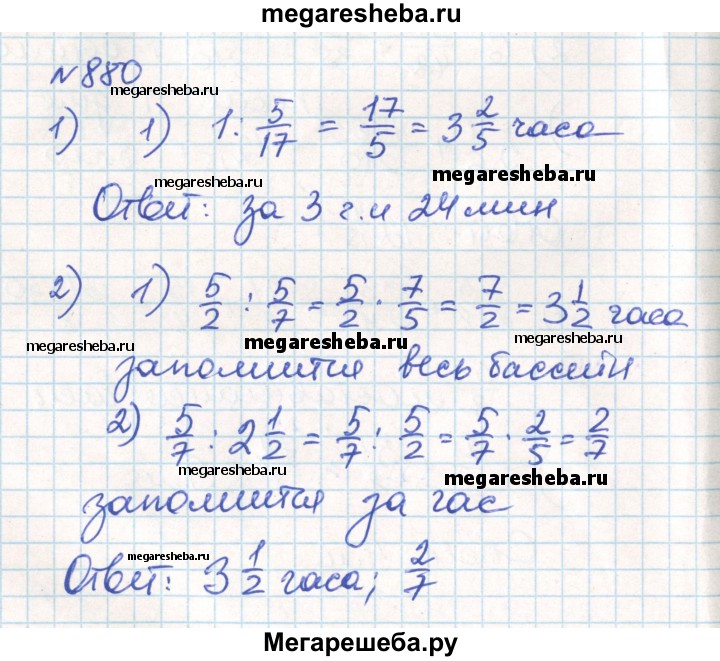 megaresheba.ru
№880
megaresheba.ru
1) 1) 1 : 5/17 = 17/5 = 3 2/5 часа
megaresheba.ru megaresheba.ru
Ответ: за 3 ч. и 24 мин
2) 1) 5/2 : 5/7 = 5/2 · 7/5 = 7/2 = 3 1/2 часа
megaresheba.ru megaresheba.ru megaresheba.ru
заполнится весь бассейн
2) 5/7 : 2 1/2 = 5/7 : 5/2 = 5/7 · 2/5 = 2/7
megaresheba.ru megaresheba.ru
заполнится за час
megaresheba.ru
Ответ: 3 1/2 часа; 2/7
Мегарешеба.ру